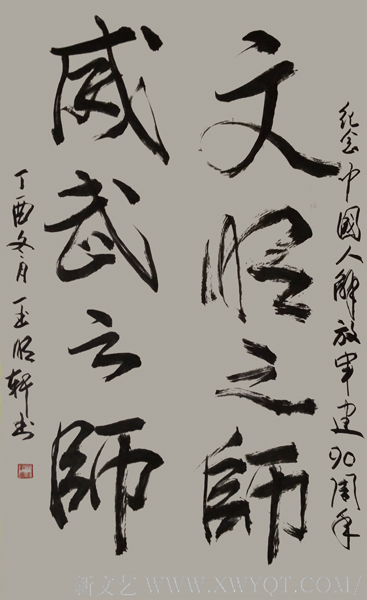 纪念中國人解放軍建90周年
文明之師
威武之師
丁酉冬月 王昭軒书
新文艺 WWW.XWYQT.COM